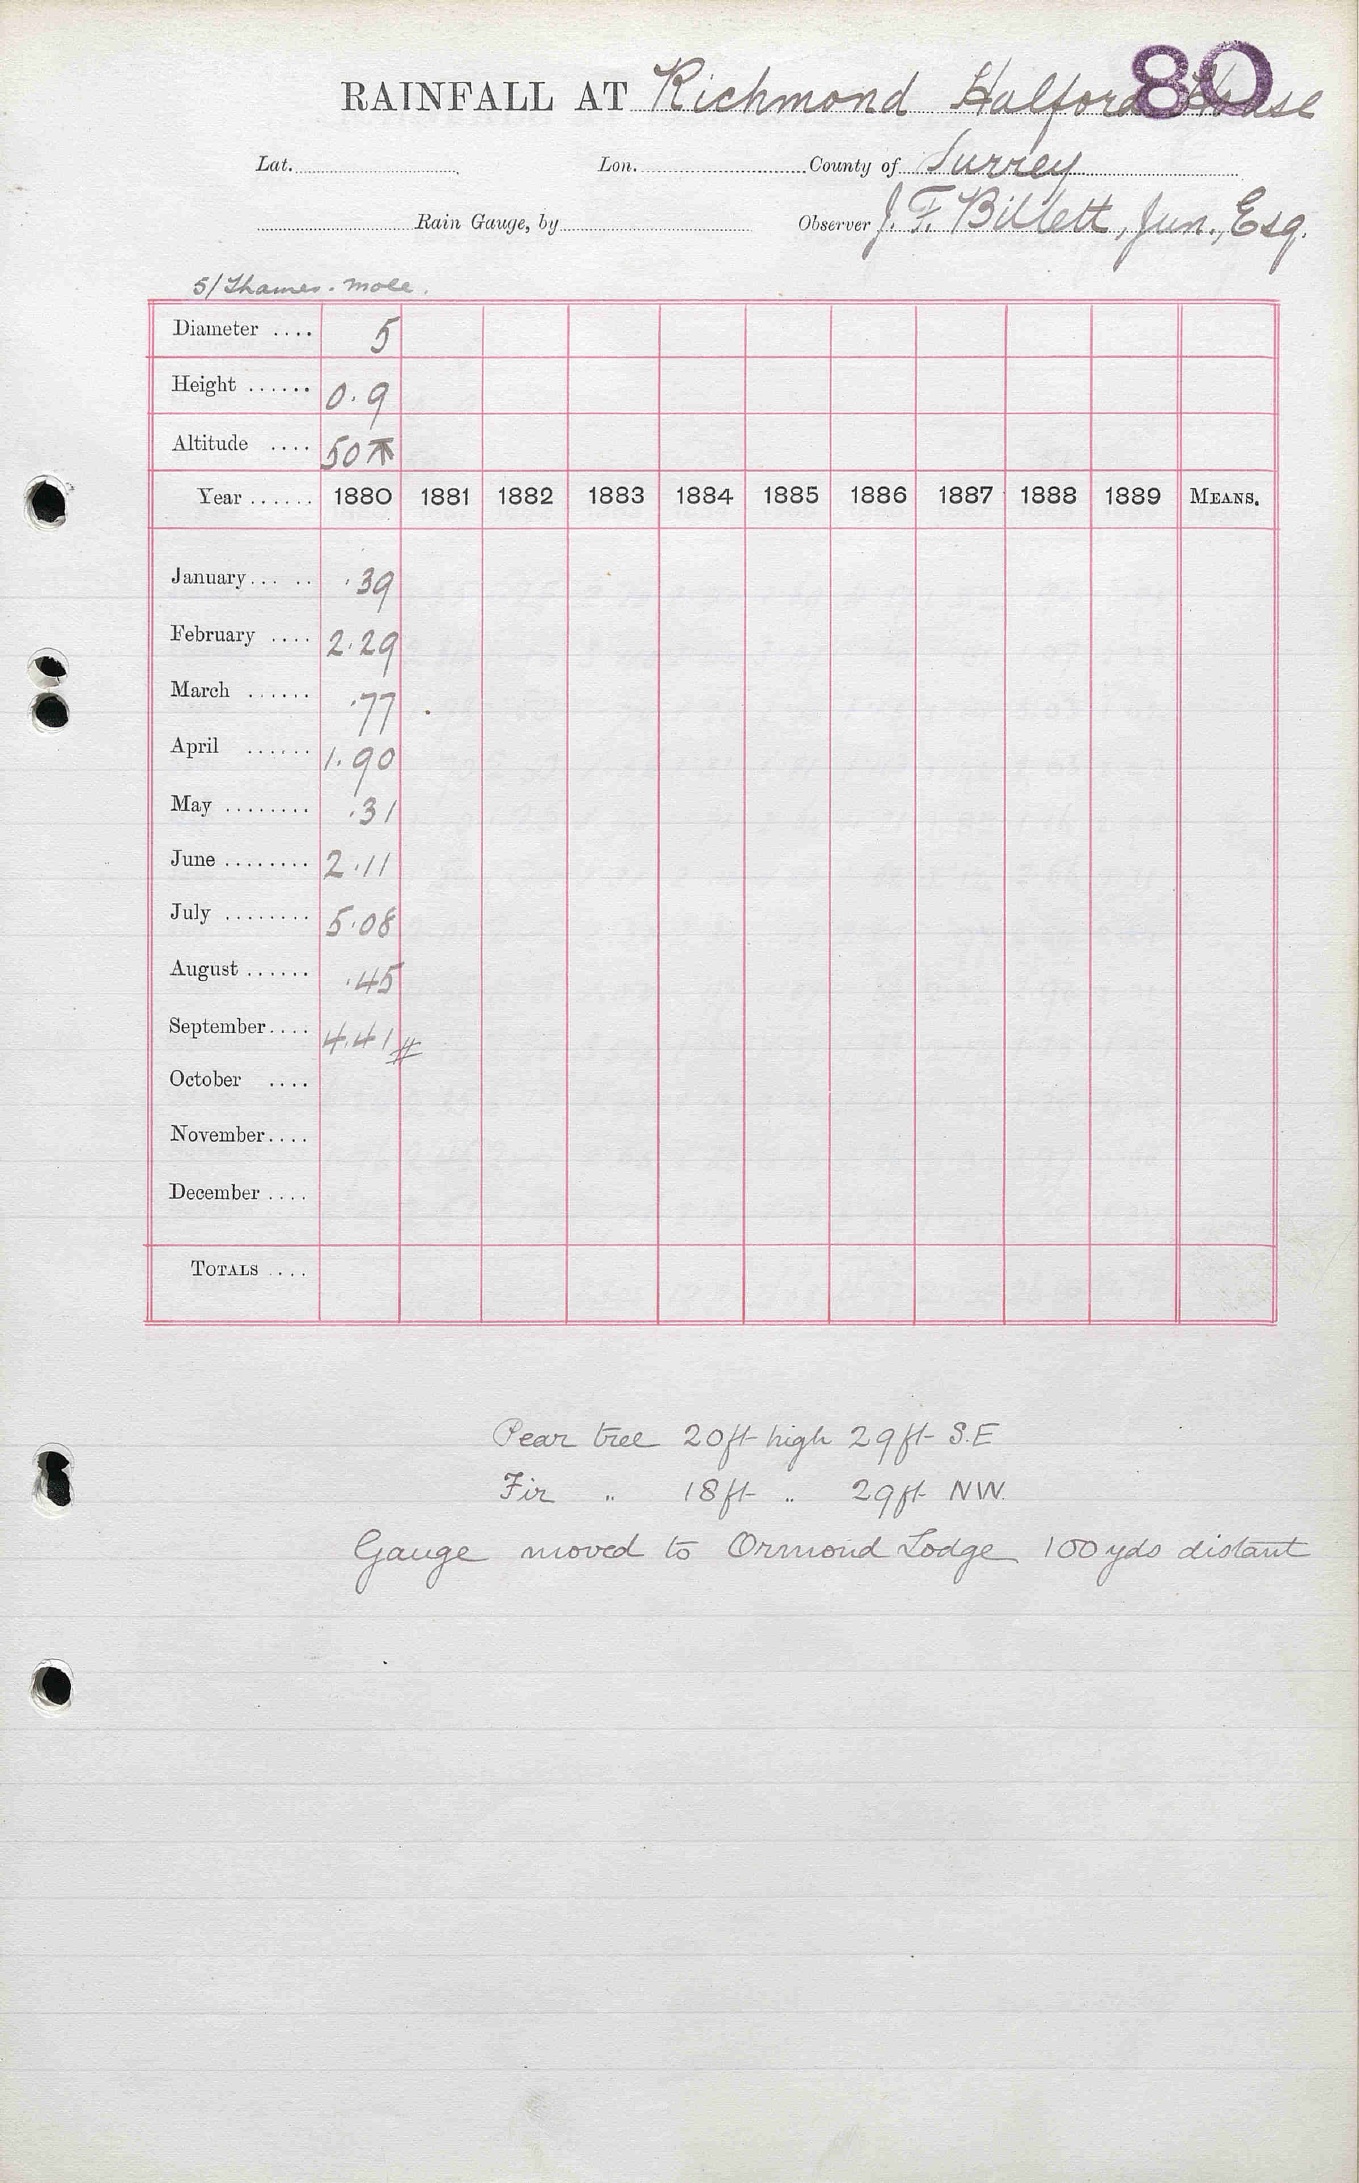 80
RAINFALL AT Richmond Halford House
Lat. Lon. County of Surrey
Rain Gauge, by Observer J. F. Billett, Jun., Esq.
5/Thames. Mole.
Diameter .... 5
Height ...... 0.9
Altitude .... 50
Year ...... 1880 1881 1882 1883 1884 1885 1886 1887 1888 1889 MEANS.
January ... .. .39
February .... 2.29
March ...... .77
April ...... 1.90
May ........ .31
June ........ 2.11
July ........ 5.08
August ...... .45
September .... 4.41 #
October ....
November ....
December ....
TOTALS ....
Pear tree 20ft high 29ft S.E
Fir " 18ft " 29ft NW.
Gauge moved to Ormond Lodge 100 yds distant